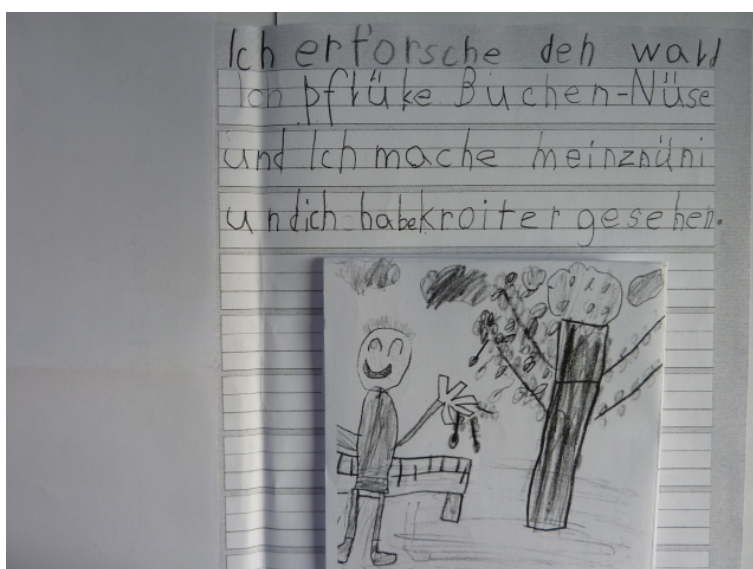 Ich erforsche den wald
Ich pflüke Buchen-Nüse
und Ich mache meinznüni
undich habekroiter gesehen.